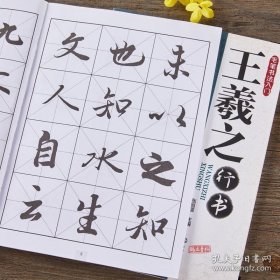 未以之知
也知水生
文人自云
九
毛笔书法入门
王羲之行书
WANGXIZHI
XINGSHU
孔夫子旧书网